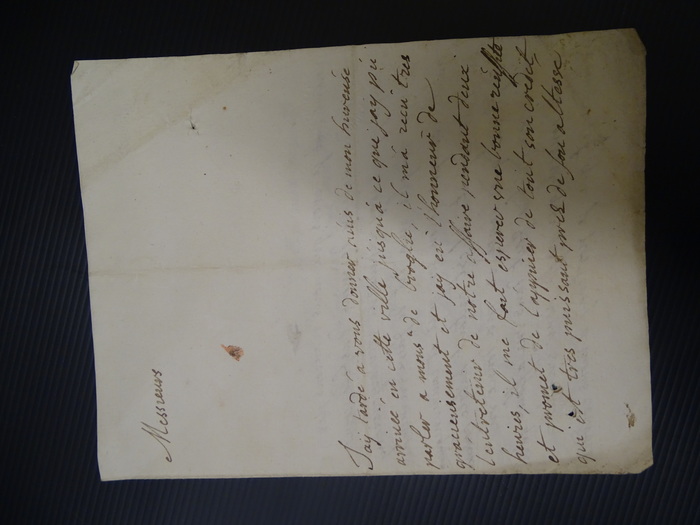 Messieurs
J'ay tardé a vous donner avis de mon heureuse
arrivée en cette ville jusqu'à ce que j'ay pû
parler a monsr de broglie, il m'a receu tres
gracieusement et j'ay eü l'honneur de
l'entretenir de notre affaire pendant deux
heures, il me fait esperer une bonne reussite
et promet de l'appuier de tout son credit
qui est tres puissant prés de son altesse